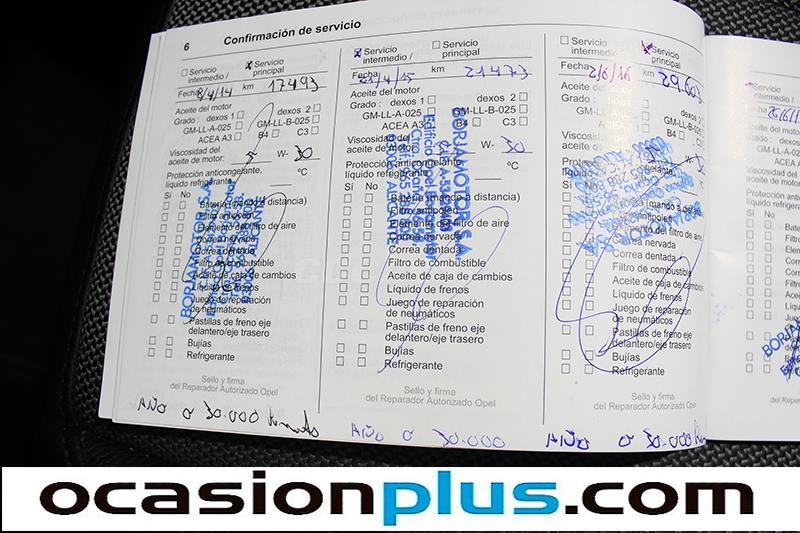 6 Confirmación de servicio
Servicio intermedio / Servicio principal
Fecha 8/4/14 km 17493
Aceite del motor
Grado: dexos 1 dexos 2
GM-LL-A-025 GM-LL-B-025
ACEA A3 B4 C3
Viscosidad del
aceite de motor: 5 W- 30
Protección anticongelante,
líquido refrigerante °C
Sí No
Batería (mando a distancia)
Filtro antipolen
Elemento del filtro de aire
Correa nervada
Correa dentada
Filtro de combustible
Aceite de caja de cambios
Líquido de frenos
Juego de reparación
de neumáticos
Pastillas de freno eje
delantero/eje trasero
Bujías
Refrigerante
BORJAMOTOR, S.A.
Sello y firma
del Reparador Autorizado Opel
AÑO o 30.000
Servicio intermedio / Servicio principal
Fecha 21/4/15 km 21473
Aceite del motor
Grado: dexos 1 dexos 2
GM-LL-A-025 GM-LL-B-025
ACEA A3 B4 C3
Viscosidad del
aceite de motor: W- 30
Protección anticongelante,
líquido refrigerante °C
Sí No
Batería (mando a distancia)
Filtro antipolen
Elemento del filtro de aire
Correa nervada
Correa dentada
Filtro de combustible
Aceite de caja de cambios
Líquido de frenos
Juego de reparación
de neumáticos
Pastillas de freno eje
delantero/eje trasero
Bujías
Refrigerante
BORJAMOTOR, S.A.
ALICANTE
Sello y firma
del Reparador Autorizado Opel
AÑO o 30.000
Servicio intermedio / Servicio principal
Fecha 2/6/16 km 29.603
Aceite del motor
Grado: dexos 1 dexos 2
GM-LL-A-025 GM-LL-B-025
ACEA A3 B4 C3
Viscosidad del
aceite de motor: W- 30
Protección anticongelante,
líquido refrigerante °C
Sí No
Batería (mando a distancia)
Filtro antipolen
Elemento del filtro de aire
Correa nervada
Correa dentada
Filtro de combustible
Aceite de caja de cambios
Líquido de frenos
Juego de reparación
de neumáticos
Pastillas de freno eje
delantero/eje trasero
Bujías
Refrigerante
Sello y firma
del Reparador Autorizado Opel
AÑO o 30.000
Servicio
intermedio /
Fecha
Aceite del motor
Grado: dexos
GM-LL-A
ACEA
Viscosidad del
aceite de motor:
Protección anti
líquido refrigera
Sí No
BORJAMO
ocasionplus.com